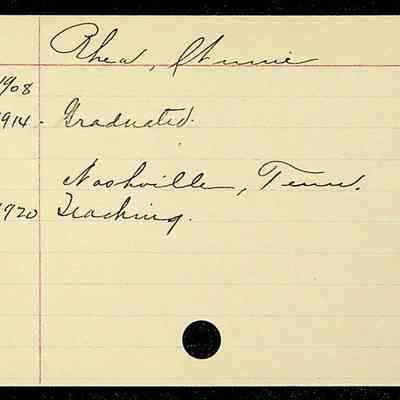 Rhea, Annie
1908
1914 - Graduated.
Nashville, Tenn.
1920 Teaching.